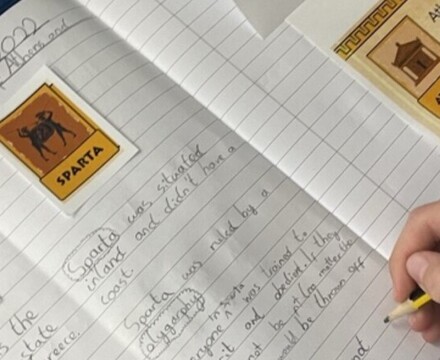 2022
Athens and
SPARTA
Sparta was situated
inland and didn't have a
coast.
Sparta was ruled by a
olygarphy
in
was trained to
it and obedient, they
not be
matter the
would be thrown off
not
s the
state
reece.